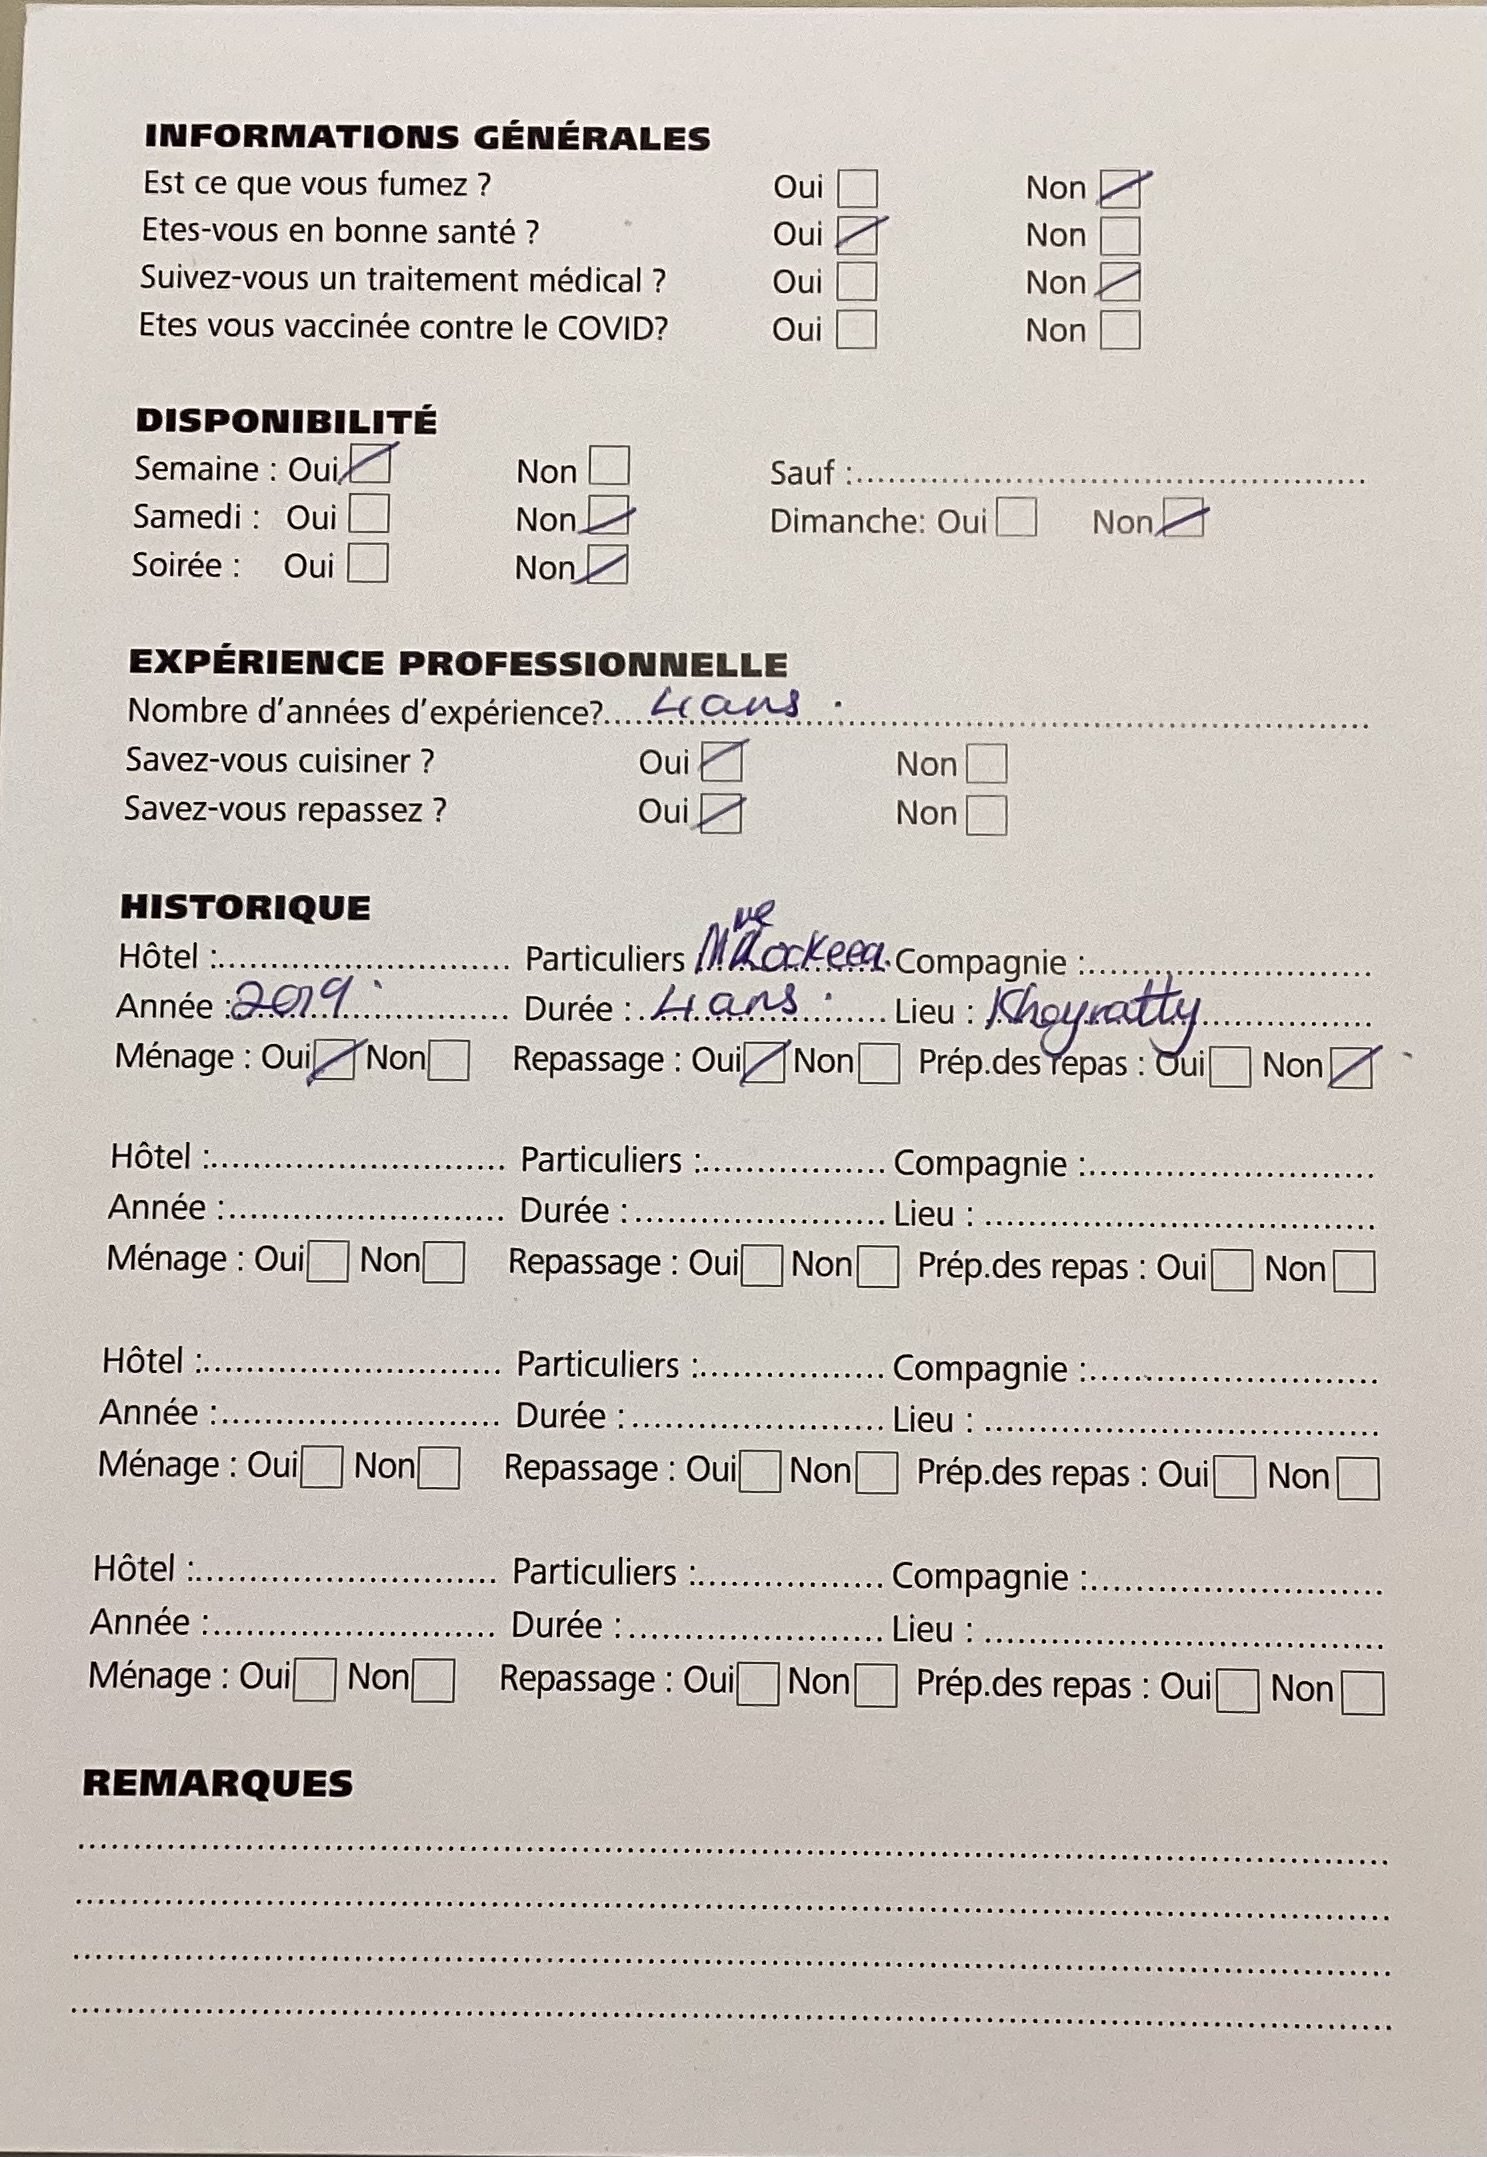 INFORMATIONS GÉNÉRALES
Est ce que vous fumez ? Oui ☐ Non ☑
Etes-vous en bonne santé ? Oui ☑ Non ☐
Suivez-vous un traitement médical ? Oui ☐ Non ☑
Etes vous vaccinée contre le COVID? Oui ☐ Non ☐
DISPONIBILITÉ
Semaine : Oui ☑ Non ☐ Sauf :..........
Samedi : Oui ☐ Non ☑ Dimanche: Oui ☐ Non ☑
Soirée : Oui ☐ Non ☑
EXPÉRIENCE PROFESSIONNELLE
Nombre d'années d'expérience?.... 4 ans .
Savez-vous cuisiner ? Oui ☑ Non ☐
Savez-vous repassez ? Oui ☑ Non ☐
HISTORIQUE
Hôtel :.......... Particuliers Mme Compagnie :..........
Année : 2019 Durée : 4 ans Lieu : Kheyratty
Ménage : Oui ☑ Non ☐ Repassage : Oui ☑ Non ☐ Prép.des repas : Oui ☐ Non ☑
Hôtel :.......... Particuliers :.......... Compagnie :..........
Année :.......... Durée :.......... Lieu : ..........
Ménage : Oui ☐ Non ☐ Repassage : Oui ☐ Non ☐ Prép.des repas : Oui ☐ Non ☐
Hôtel :.......... Particuliers :.......... Compagnie :..........
Année :.......... Durée :.......... Lieu : ..........
Ménage : Oui ☐ Non ☐ Repassage : Oui ☐ Non ☐ Prép.des repas : Oui ☐ Non ☐
Hôtel :.......... Particuliers :.......... Compagnie :..........
Année :.......... Durée :.......... Lieu : ..........
Ménage : Oui ☐ Non ☐ Repassage : Oui ☐ Non ☐ Prép.des repas : Oui ☐ Non ☐
REMARQUES